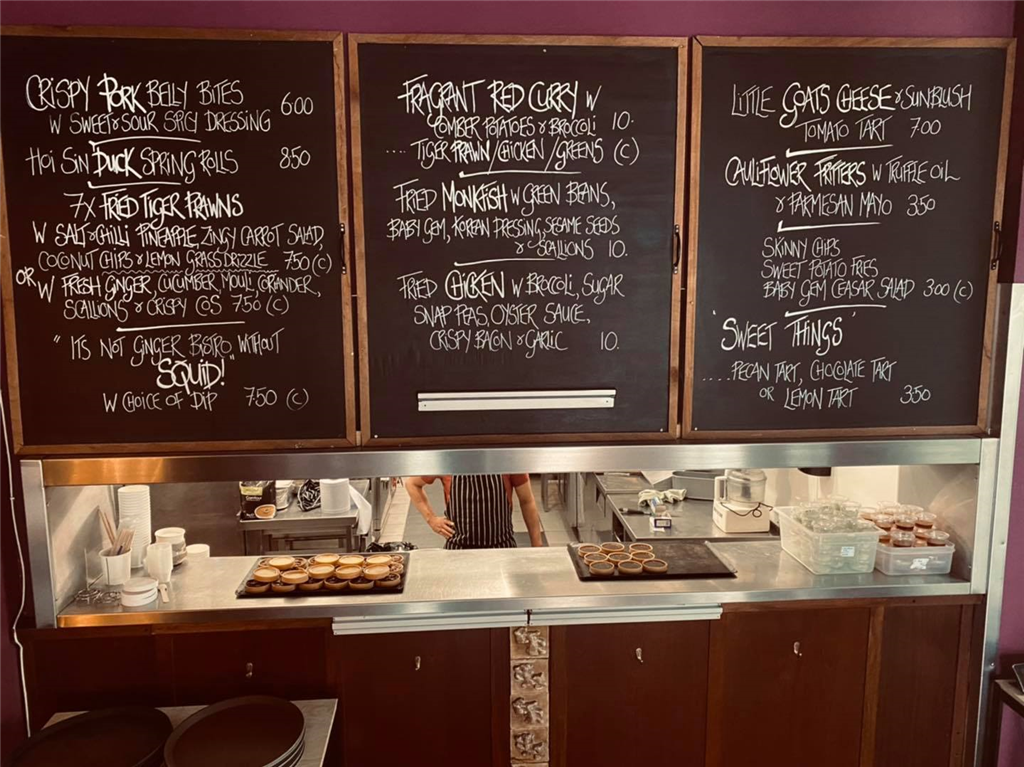 CRISPY PORK BELLY BITES 6.00
W SWEET & SOUR SPICY DRESSING
HOI SIN DUCK SPRING ROLLS 8.50
7X FRIED TIGER PRAWNS
W SALT & CHILLI PINEAPPLE, ZINGY CARROT SALAD,
COCONUT CHIPS & LEMON GRASS DRIZZLE 7.50 (C)
OR W FRESH GINGER, CUCUMBER, MOULI, CORIANDER,
SCALLIONS & CRISPY COS 7.50 (C)
"ITS NOT GINGER BISTRO WITHOUT
SQUID!"
W CHOICE OF DIP 7.50 (C)
FRAGRANT RED CURRY W
COMBER POTATOES & BROCOLI 10.
.... TIGER PRAWN / CHICKEN / GREENS (C)
FRIED MONKFISH W GREEN BEANS,
BABY GEM, KOREAN DRESSING, SESAME SEEDS
& SCALLIONS 10.
FRIED CHICKEN W BROCOLI, SUGAR
SNAP PEAS, OYSTER SAUCE,
CRISPY BACON & GARLIC 10.
LITTLE GOATS CHEESE & SUNBLUSH
TOMATO TART 7.00
CAULIFLOWER FRITTERS W TRUFFLE OIL
& PARMESAN MAYO 3.50
SKINNY CHIPS
SWEET POTATO FRIES
BABY GEM CEASAR SALAD 3.00 (C)
'SWEET THINGS'
.... PECAN TART, CHOCOLATE TART
OR LEMON TART 3.50